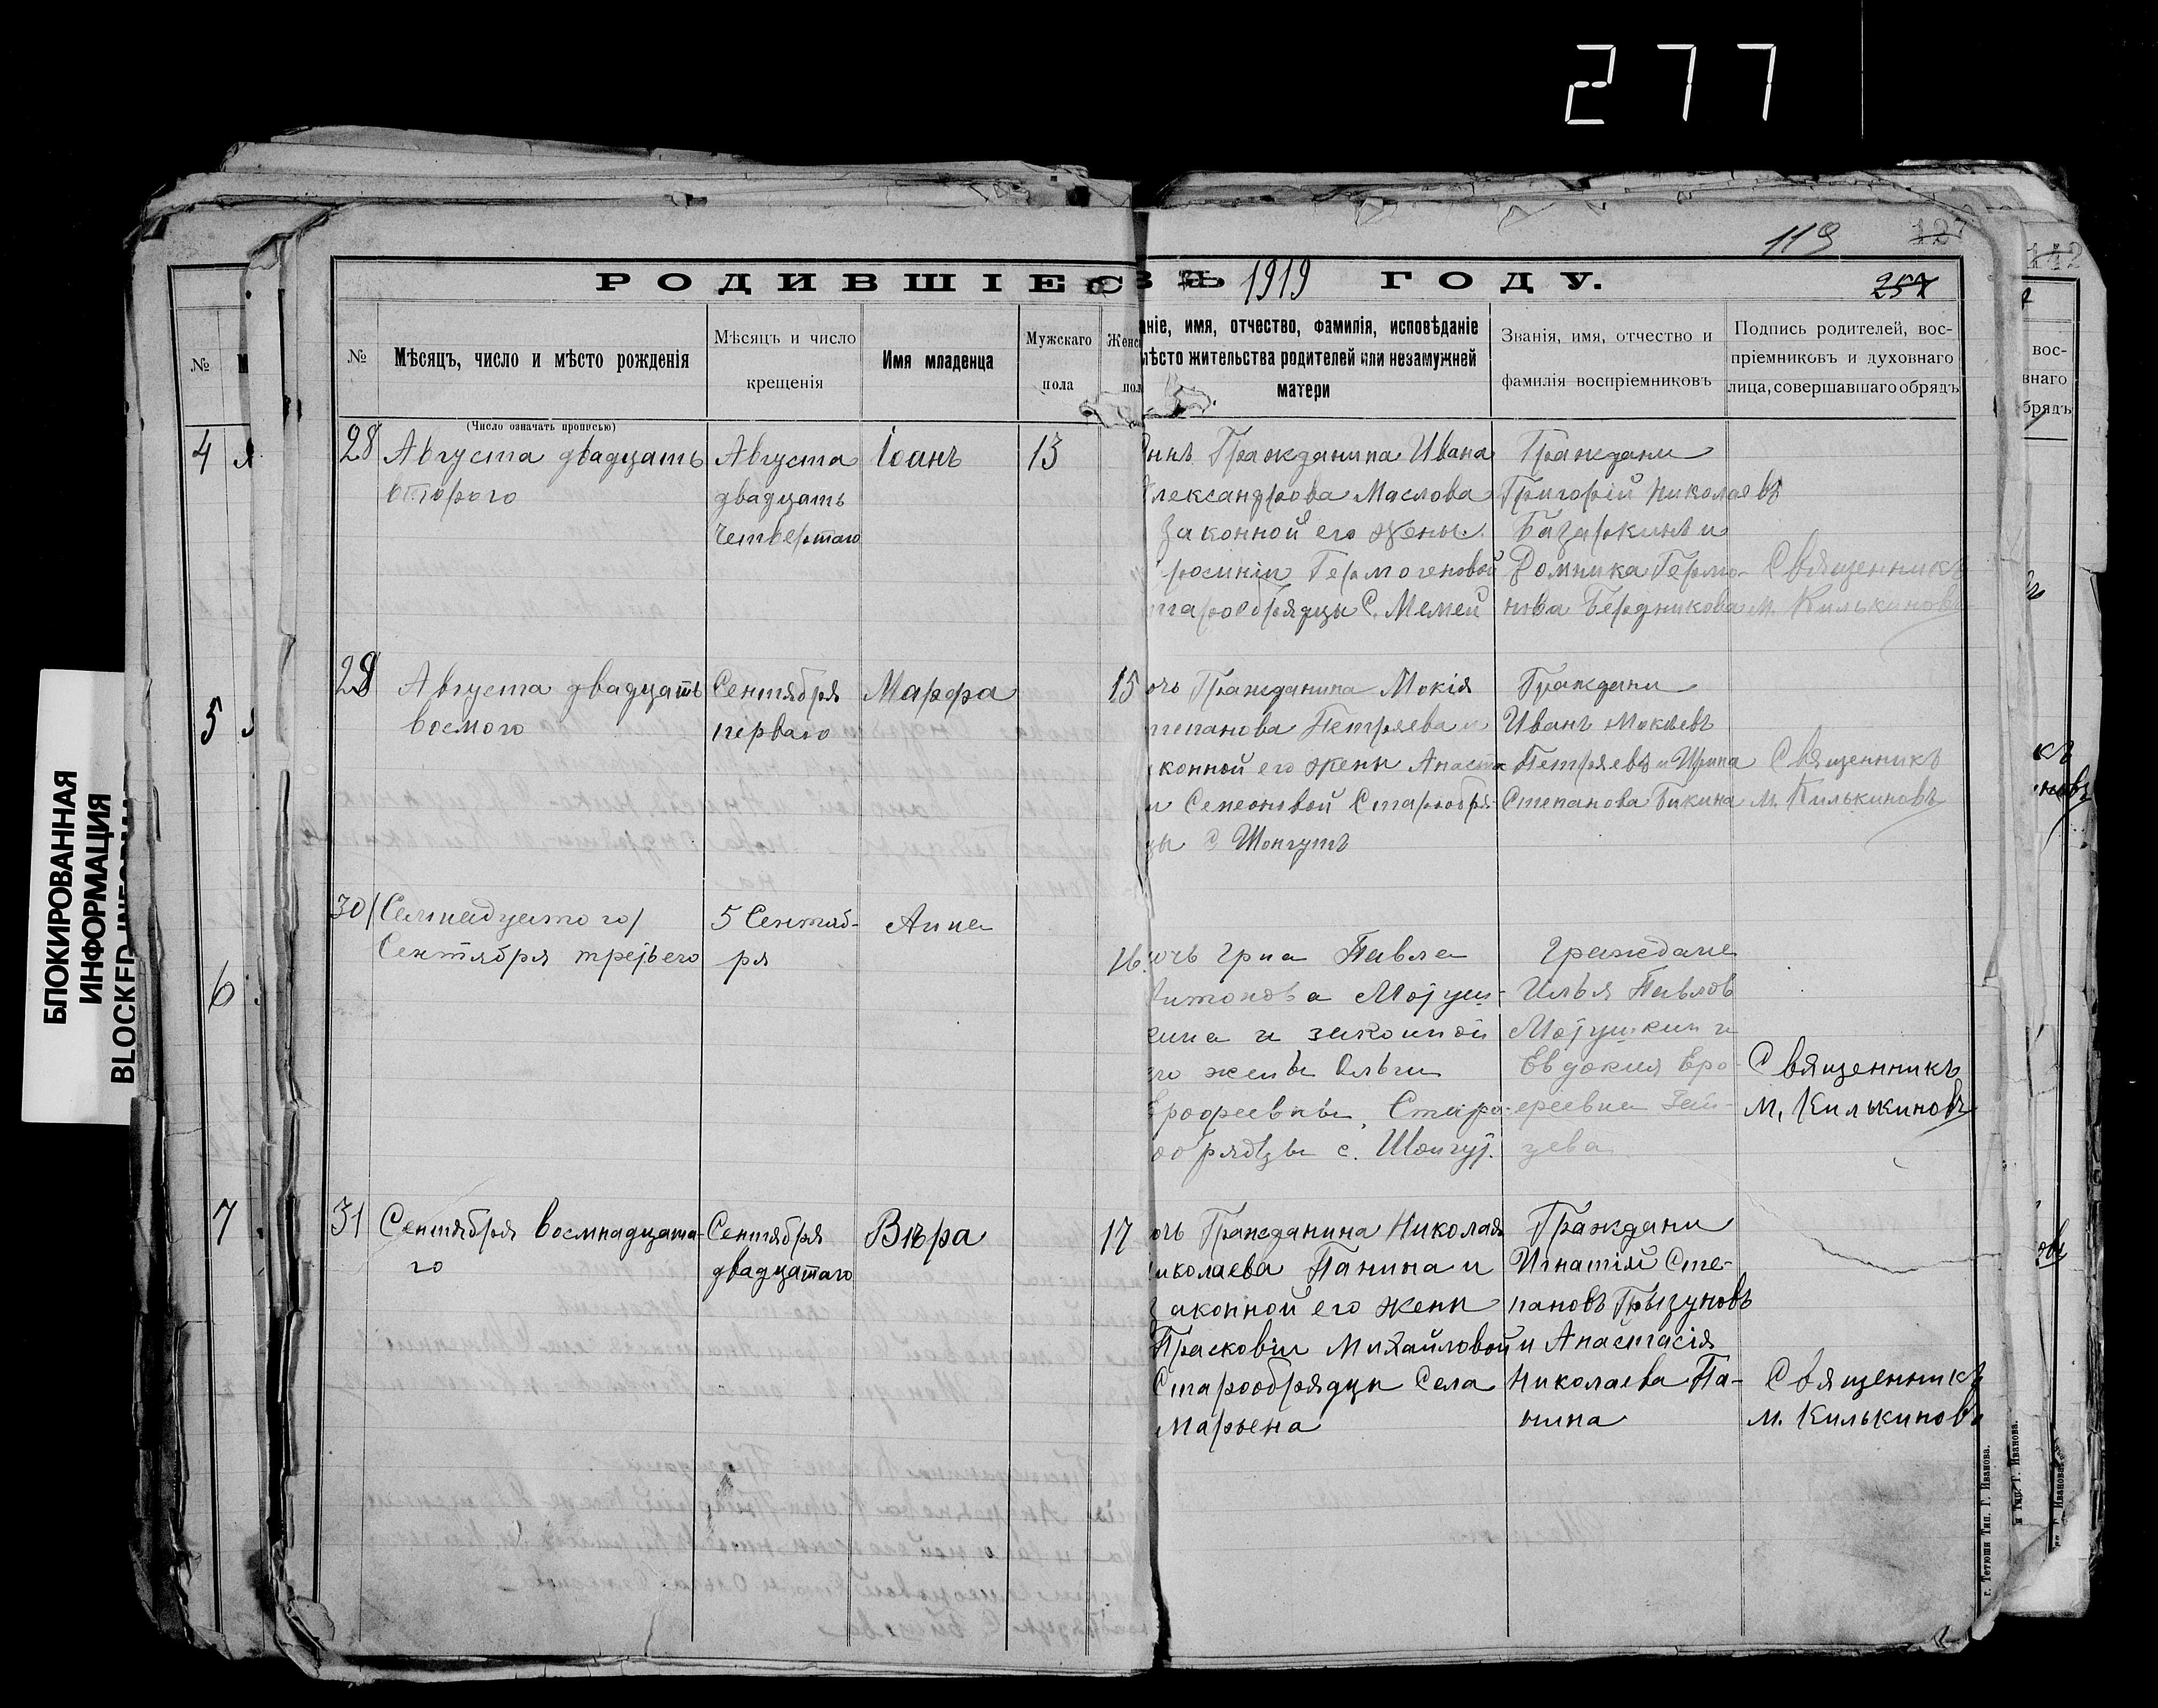 277
119
127
257
142
РОДИВШІЕС
ВЪ 1919 ГОДУ.
№
Мѣсяцъ, число и мѣсто рожденія
(Число означать прописью)
Мѣсяцъ и число
крещенія
Имя младенца
Мужскаго
пола
Женс
пол
аніе, имя, отчество, фамилія, исповѣданіе
мѣсто жительства родителей или незамужней
матери
Званія, имя, отчество и
фамилія воспріемниковъ
Подпись родителей, вос-
пріемниковъ и духовнаго
лица, совершавшаго обрядъ
28 Августа двадцать
второго
Августа
двадцать
четвертаго
Іоанъ
13
Гражданина Ивана
лександрова Маслова
законной его жены
Гермогеновой
тарообрядцы С. Мемей
Граждани
Григорій Николаевъ
Базаркинъ и
Домника Гермо-
нова Бердникова
Священникъ
М. Килькиновъ
29 Августа двадцать
восмого
Сентября
перваго
Марфа
15
очь Гражданина Мокія
тепанова Петряева и
конной его жены Анаста
и Семеоновой Старообря-
цы С Шонгутъ
Граждани
Иванъ Мокіевъ
Петряевъ и Ирина
Степанова Бикина
Священникъ
М. Килькиновъ
30 (Семнадцатого)
Сентября третьего
5 Сентяб-
ря
Анна
16
очь Грна Павла
Антонова Мотуш-
кина и законной
го жены Ольги
Ерофеевны, Старо-
обрядцы с. Шонгут.
Граждане
Илья Павлов
Мотушкин и
Евдокия Еро-
феевна
Священникъ
М. Килькиновъ
31 Сентября восмнадцата-
го
Сентября
двадцатаго
Вѣра
17
очь Гражданина Николая
иколаева Панина и
законной его жены
Прасковіи Михайловой
Старообрядцы Села
Марьена
Граждани
Игнатій Сте-
пановъ Грызуновъ
и Анастасія
Николаева Па-
нина
Священникъ
М. Килькиновъ
№
4
5
6
7
вос-
внаго
брядъ
БЛОКИРОВАННАЯ
ИНФОРМАЦИЯ
г. Тетюши Тип. Г. Иванова.